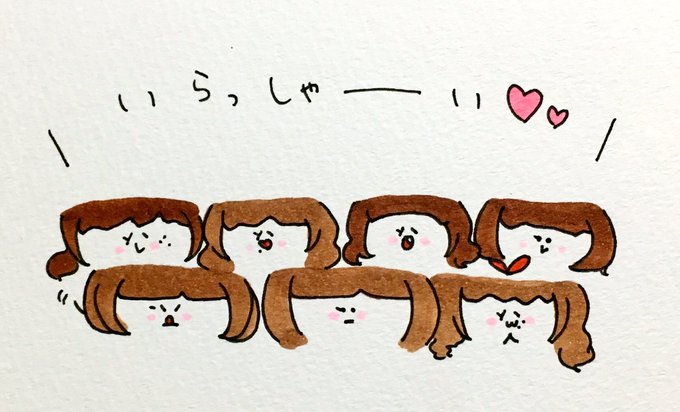 いらっしゃーい